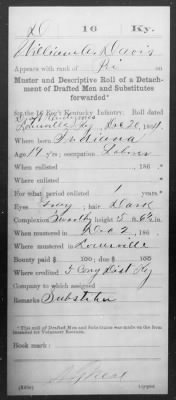 D 16 Ky.
William W. Davis
Appears with rank of Pri on
Muster and Descriptive Roll of a Detachment
of Drafted Men and Substitutes
forwarded*
for the 16 Reg't Kentucky Infantry. Roll dated
Louisville Ky Dec 20, 1864.
Where born Indiana
Age 19 y'rs; occupation Laborer
When enlisted , 186 .
Where enlisted
For what period enlisted 1 years
Eyes Gray ; hair Dark
Complexion Swarthy height 5 ft. 6½ in.
When mustered in Dec 2 , 186 .
Where mustered in Louisville
Bounty paid $ 100; due $ 100
Where credited Cong Dist Ky
Company to which assigned
Remarks: Substitute
*This roll of Drafted Men and Substitutes was made on the form
intended for Volunteer Recruits.
Book mark:
Copyist.